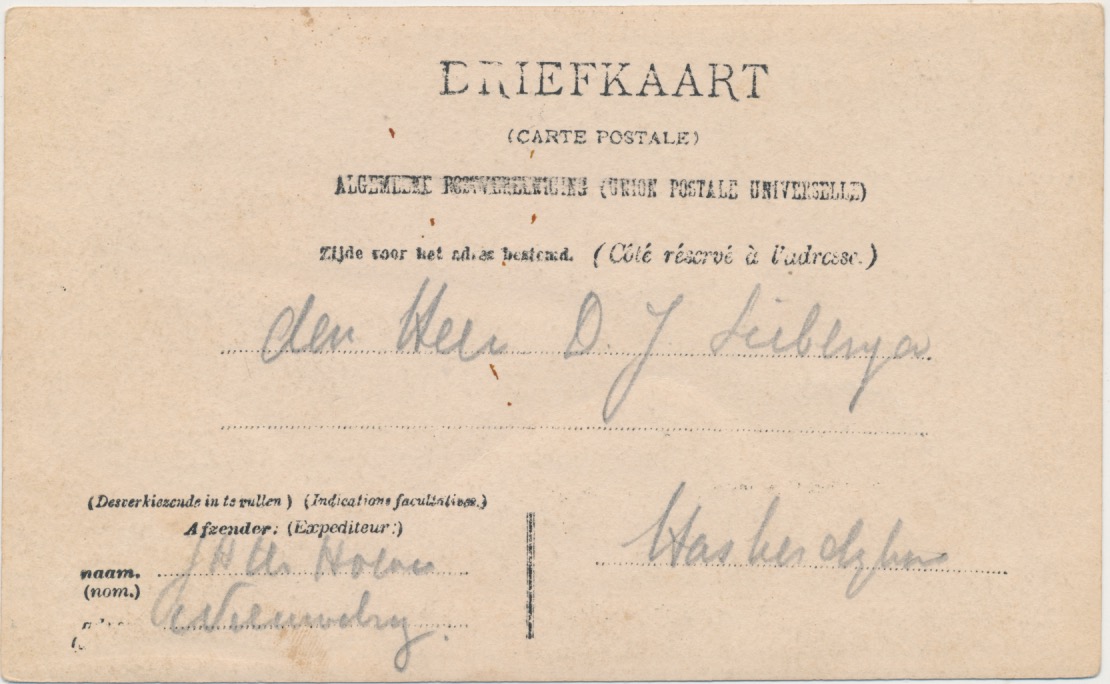 BRIEFKAART
(CARTE POSTALE)
ALGEMEENE POSTVEREENIGING (UNION POSTALE UNIVERSELLE)
Zijde voor het adres bestemd. (Côté réservé à l'adresse.)
den Heer D. J
(Desverkiezende in te vullen) (Indications facultatives.)
Afzender: (Expediteur:)
naam.
(nom.)